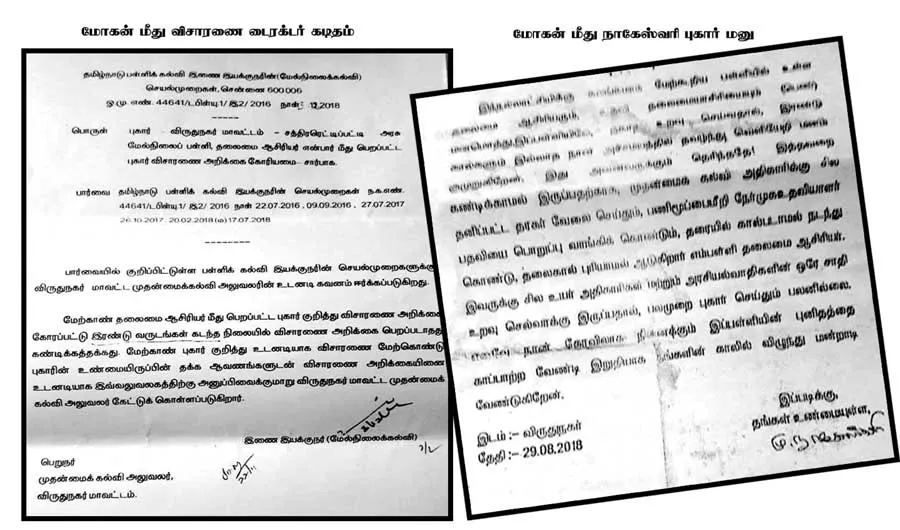 மோகன் மீது விசாரணை டைரக்டர் கடிதம்
தமிழ்நாடு பள்ளிக் கல்வி இணை இயக்குநரின்(மேல்நிலைக்கல்வி)
செயல்முறைகள், சென்னை 600 006
ஓ.மு. எண். 44641/டபிள்யு1/ இ2/ 2016 நாள் .12.2018
பொருள் புகார் - விருதுநகர் மாவட்டம் - சத்திரரெட்டிப்பட்டி அரசு
மேல்நிலைப் பள்ளி, தலைமை ஆசிரியர் என்பார் மீது பெறப்பட்ட
புகார் விசாரணை அறிக்கை கோரியமை- சார்பாக.
பார்வை தமிழ்நாடு பள்ளிக் கல்வி இயக்குநரின் செயல்முறைகள் ந.க.எண்.
44641/டபிள்யு1/ இ2/ 2016 நாள் 22.07.2016 , 09.09.2016 , 27.07.2017
26.10.2017 20.02.2018 17.07.2018
பார்வையில் குறிப்பிட்டுள்ள பள்ளிக் கல்வி இயக்குநரின் செயல்முறைகளுக்கு
விருதுநகர் மாவட்ட முதன்மைக்கல்வி அலுவலரின் உடனடி கவனம் ஈர்க்கப்படுகிறது.
மேற்காண் தலைமை ஆசிரியர் மீது பெறப்பட்ட புகார் குறித்து விசாரணை அறிக்கை
கோரப்பட்டு இரண்டு வருடங்கள் கடந்த நிலையில் விசாரணை அறிக்கை பெறப்படாதது
கண்டிக்கத்தக்கது. மேற்காண் புகார் குறித்து உடனடியாக விசாரணை மேற்கொண்டு
புகாரின் உண்மையிருப்பின் தக்க ஆவணங்களுடன் விசாரணை அறிக்கையினை
உடனடியாக இவ்வலுவலகத்திற்கு அனுப்பிவைக்குமாறு விருதுநகர் மாவட்ட முதன்மைக்
கல்வி அலுவலர் கேட்டுக் கொள்ளப்படுகிறார்.
இணை இயக்குநர் (மேல்நிலைக்கல்வி)
பெறுநர்
முதன்மைக் கல்வி அலுவலர்,
விருதுநகர் மாவட்டம்.
மோகன் மீது நாகேஸ்வரி புகார் மனு
மேற்கூறிய பள்ளியில் உள்ள
தலைமை ஆசிரியரும், உதவி தலைமையாசிரியையும் (பெண்)
உறவு செய்வதால், இரண்டு
கால்களும் இல்லாத நான் வெளியேறி மனம்
குமுறுகிறேன். இது அனைவருக்கும் தெரிந்ததே! இத்தவறை
கண்டிக்காமல் இருப்பதற்காக, முதன்மைக் கல்வி அதிகாரிக்கு சில
தனிப்பட்ட தரகர் வேலை செய்தும், பணிமூப்பைமீறி நேர்முகஉதவியாளர்
பதவியை பொறுப்பு வாங்கிக் கொண்டும், தரையில் கால்படாமல் நடந்து
கொண்டு, தலைகால் புரியாமல் ஆடுகிறார் எம்பள்ளி தலைமை ஆசிரியர்.
இவருக்கு சில உயர் அதிகாரிகள் மற்றும் அரசியல்வாதிகளின் ஒரே சாதி
உறவு செல்வாக்கு இருப்பதால், பலமுறை புகார் செய்தும் பலனில்லை.
எனவே நான் கோவிலாக நினைக்கும் இப்பள்ளியின் புனிதத்தை
காப்பாற்ற வேண்டி இறுதியாக தங்களின் காலில் விழுந்து மன்றாடி
வேண்டுகிறேன்.
இப்படிக்கு,
தங்கள் உண்மையுள்ள,
இடம் :- விருதுநகர்
தேதி :- 29.08.2018